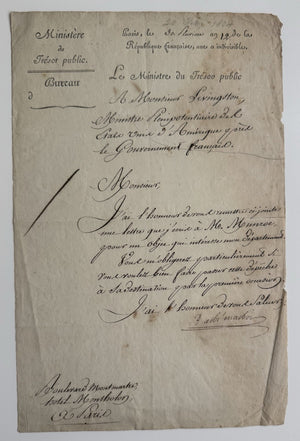 Ministère
du
Trésor public.
Bureau
d
Paris, le 30 Pluviose an 12 de la
République française, une et indivisible.
Le Ministre du Trésor public
A Monsieur Livingston,
Ministre Plenipotentiaire des
Etats unis d'Amérique près
le Gouvernement français.
Monsieur,
J'ai l'honneur de vous remettre ci joint
une lettre que j'écris à Mr. Munroe
pour un objet qui intéresse mon département
Vous m'obligerez particulierement si
vous voulez bien faire passer cette dépêche
à sa destination par le premier courier.
J'ai l'honneur de vous saluer
Barbé marbois
Boulevard Montmartre
hotel Montholon
à Paris